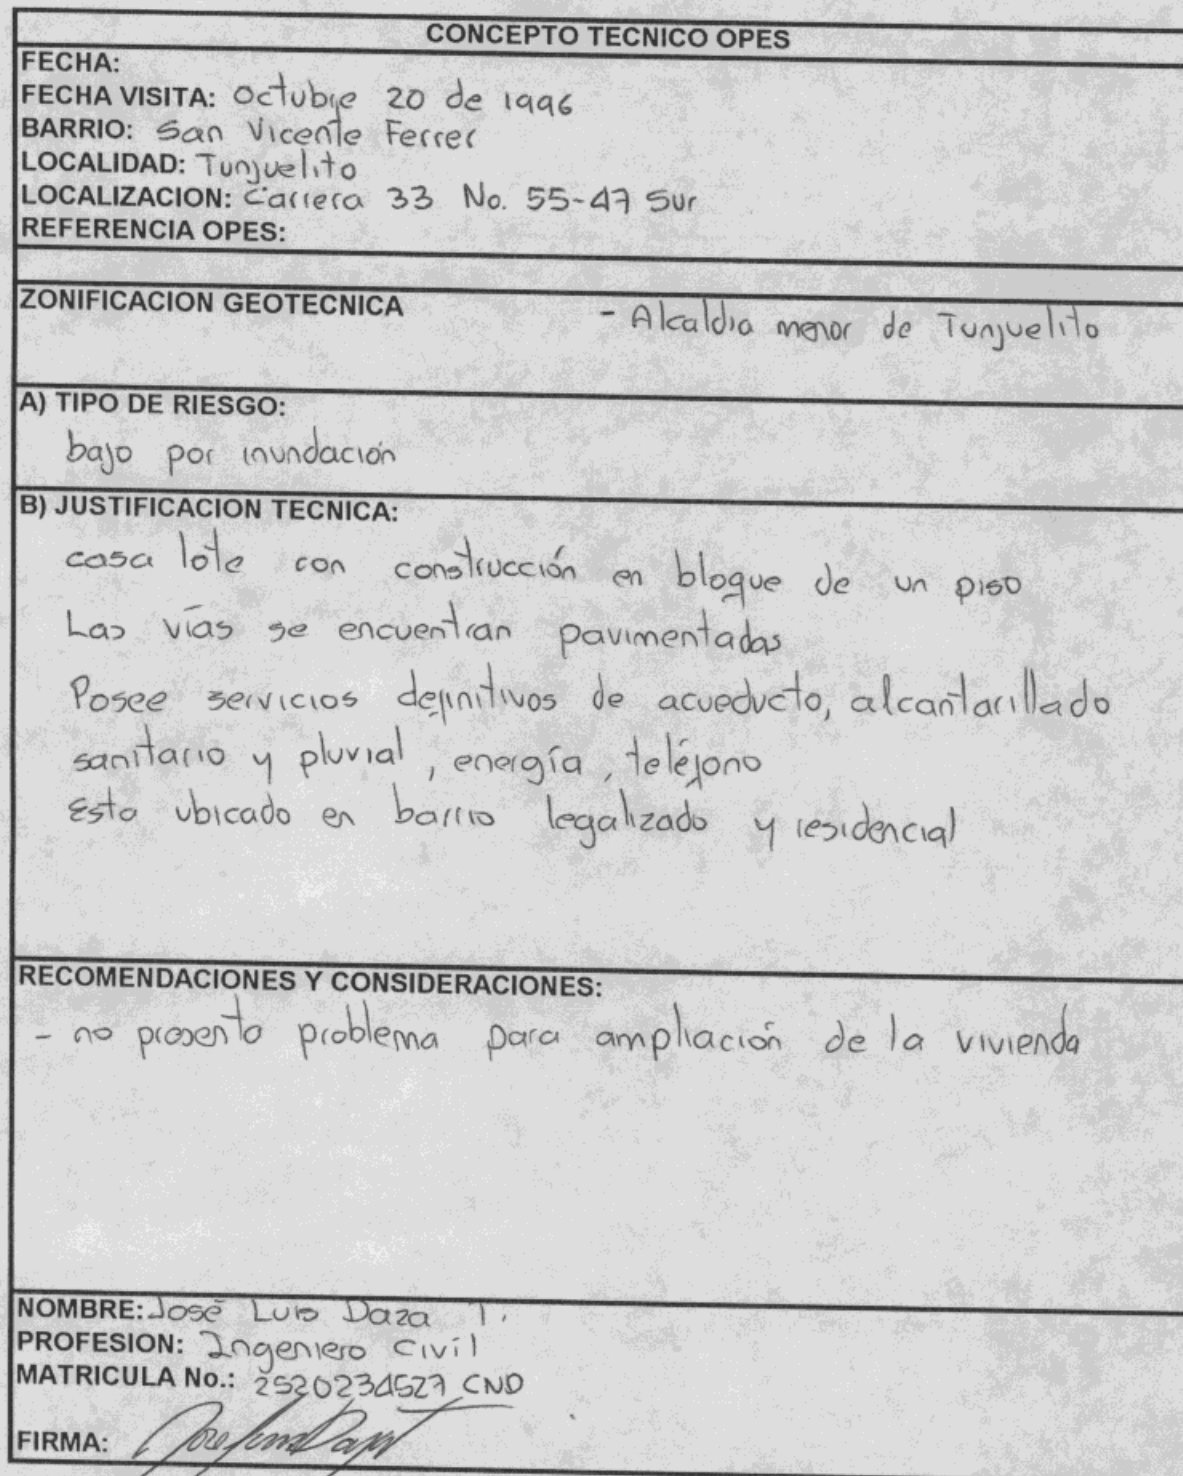 CONCEPTO TECNICO OPES
FECHA:
FECHA VISITA: Octubre 20 de 1996
BARRIO: San Vicente Ferrer
LOCALIDAD: Tunjuelito
LOCALIZACION: Carrera 33 No. 55-47 Sur
REFERENCIA OPES:
ZONIFICACION GEOTECNICA - Alcaldia menor de Tunjuelito
A) TIPO DE RIESGO:
bajo por inundación
B) JUSTIFICACION TECNICA:
casa lote con construcción en bloque de un piso
Las vías se encuentran pavimentadas
Posee servicios definitivos de acueducto, alcantarillado
sanitario y pluvial, energía, teléfono
Esta ubicado en barrio legalizado y residencial
RECOMENDACIONES Y CONSIDERACIONES:
- no presenta problema para ampliación de la vivienda
NOMBRE: José Luis Daza T.
PROFESION: Ingeniero Civil
MATRICULA No.: 2520234527 CND
FIRMA: